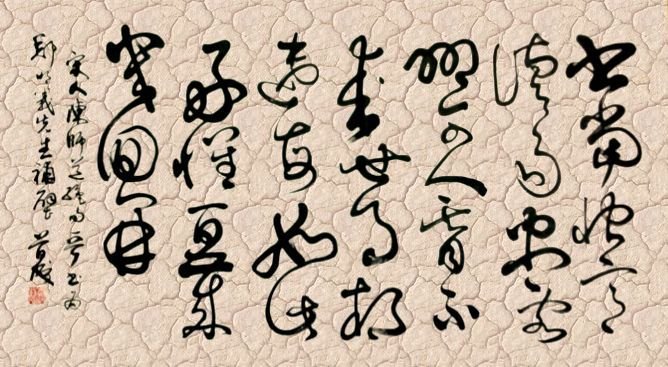 書當快意
讀易盡客
有可人期不
來世事相
違每如此
好懷百歲
幾回開
宋人陳師道絕句
先生補壁